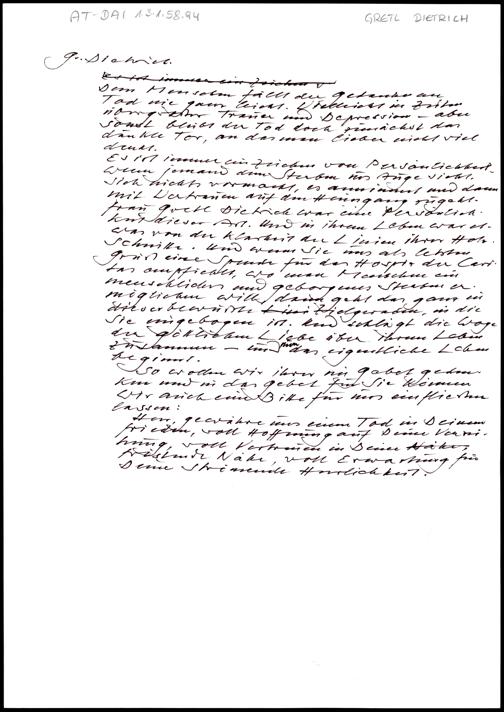 AT-DAI 13.1.58.94
GRETL DIETRICH
Gr. Dietrich.
Es ist immer ein Zeichen v
Dem Menschen fällt der Gedanke an
Tod nie ganz leicht. Vielleicht in Zeiten
übergroßer Trauer und Depression – aber
sonst bleibt der Tod doch zunächst das
dunkle Tor, an das man lieber nicht viel
denkt.
Es ist immer ein Zeichen von Persönlichkeit,
wenn jemand dem Sterben ins Auge sieht,
sich nichts vormacht, es annimmt und dann
mit Vertrauen auf den Heimgang zugeht.
Frau Gretl Dietrich war eine Persönlich-
keit dieser Art. Und in ihrem Leben war et-
was von der Klarheit der Linien ihrer Holz-
schnitte. Und wenn sie uns als letzten
Gruß eine Spende für das Hospiz der Cari-
tas empfiehlt, wo man Menschen ein
menschliches und geborgenes Sterben er-
möglichen will, dann geht das ganz in
diese Zielgeraden, in die
sie eingebogen ist. Und schlägt die Woge
der göttlichen Liebe über ihrem Leben
zusammen – und nun das eigentliche Leben
beginnt.
So wollen wir ihrer im Gebet geden-
ken und in das Gebet für sie können
wir auch eine Bitte für uns einfließen
lassen:
Herr, gewähre uns einen Tod in Deinem
Frieden, voll Hoffnung auf Deine Verzei-
hung, voll Vertrauen in Deine Nähe,
Nähe, voll Erwartung für
Deine strömende Herrlichkeit.